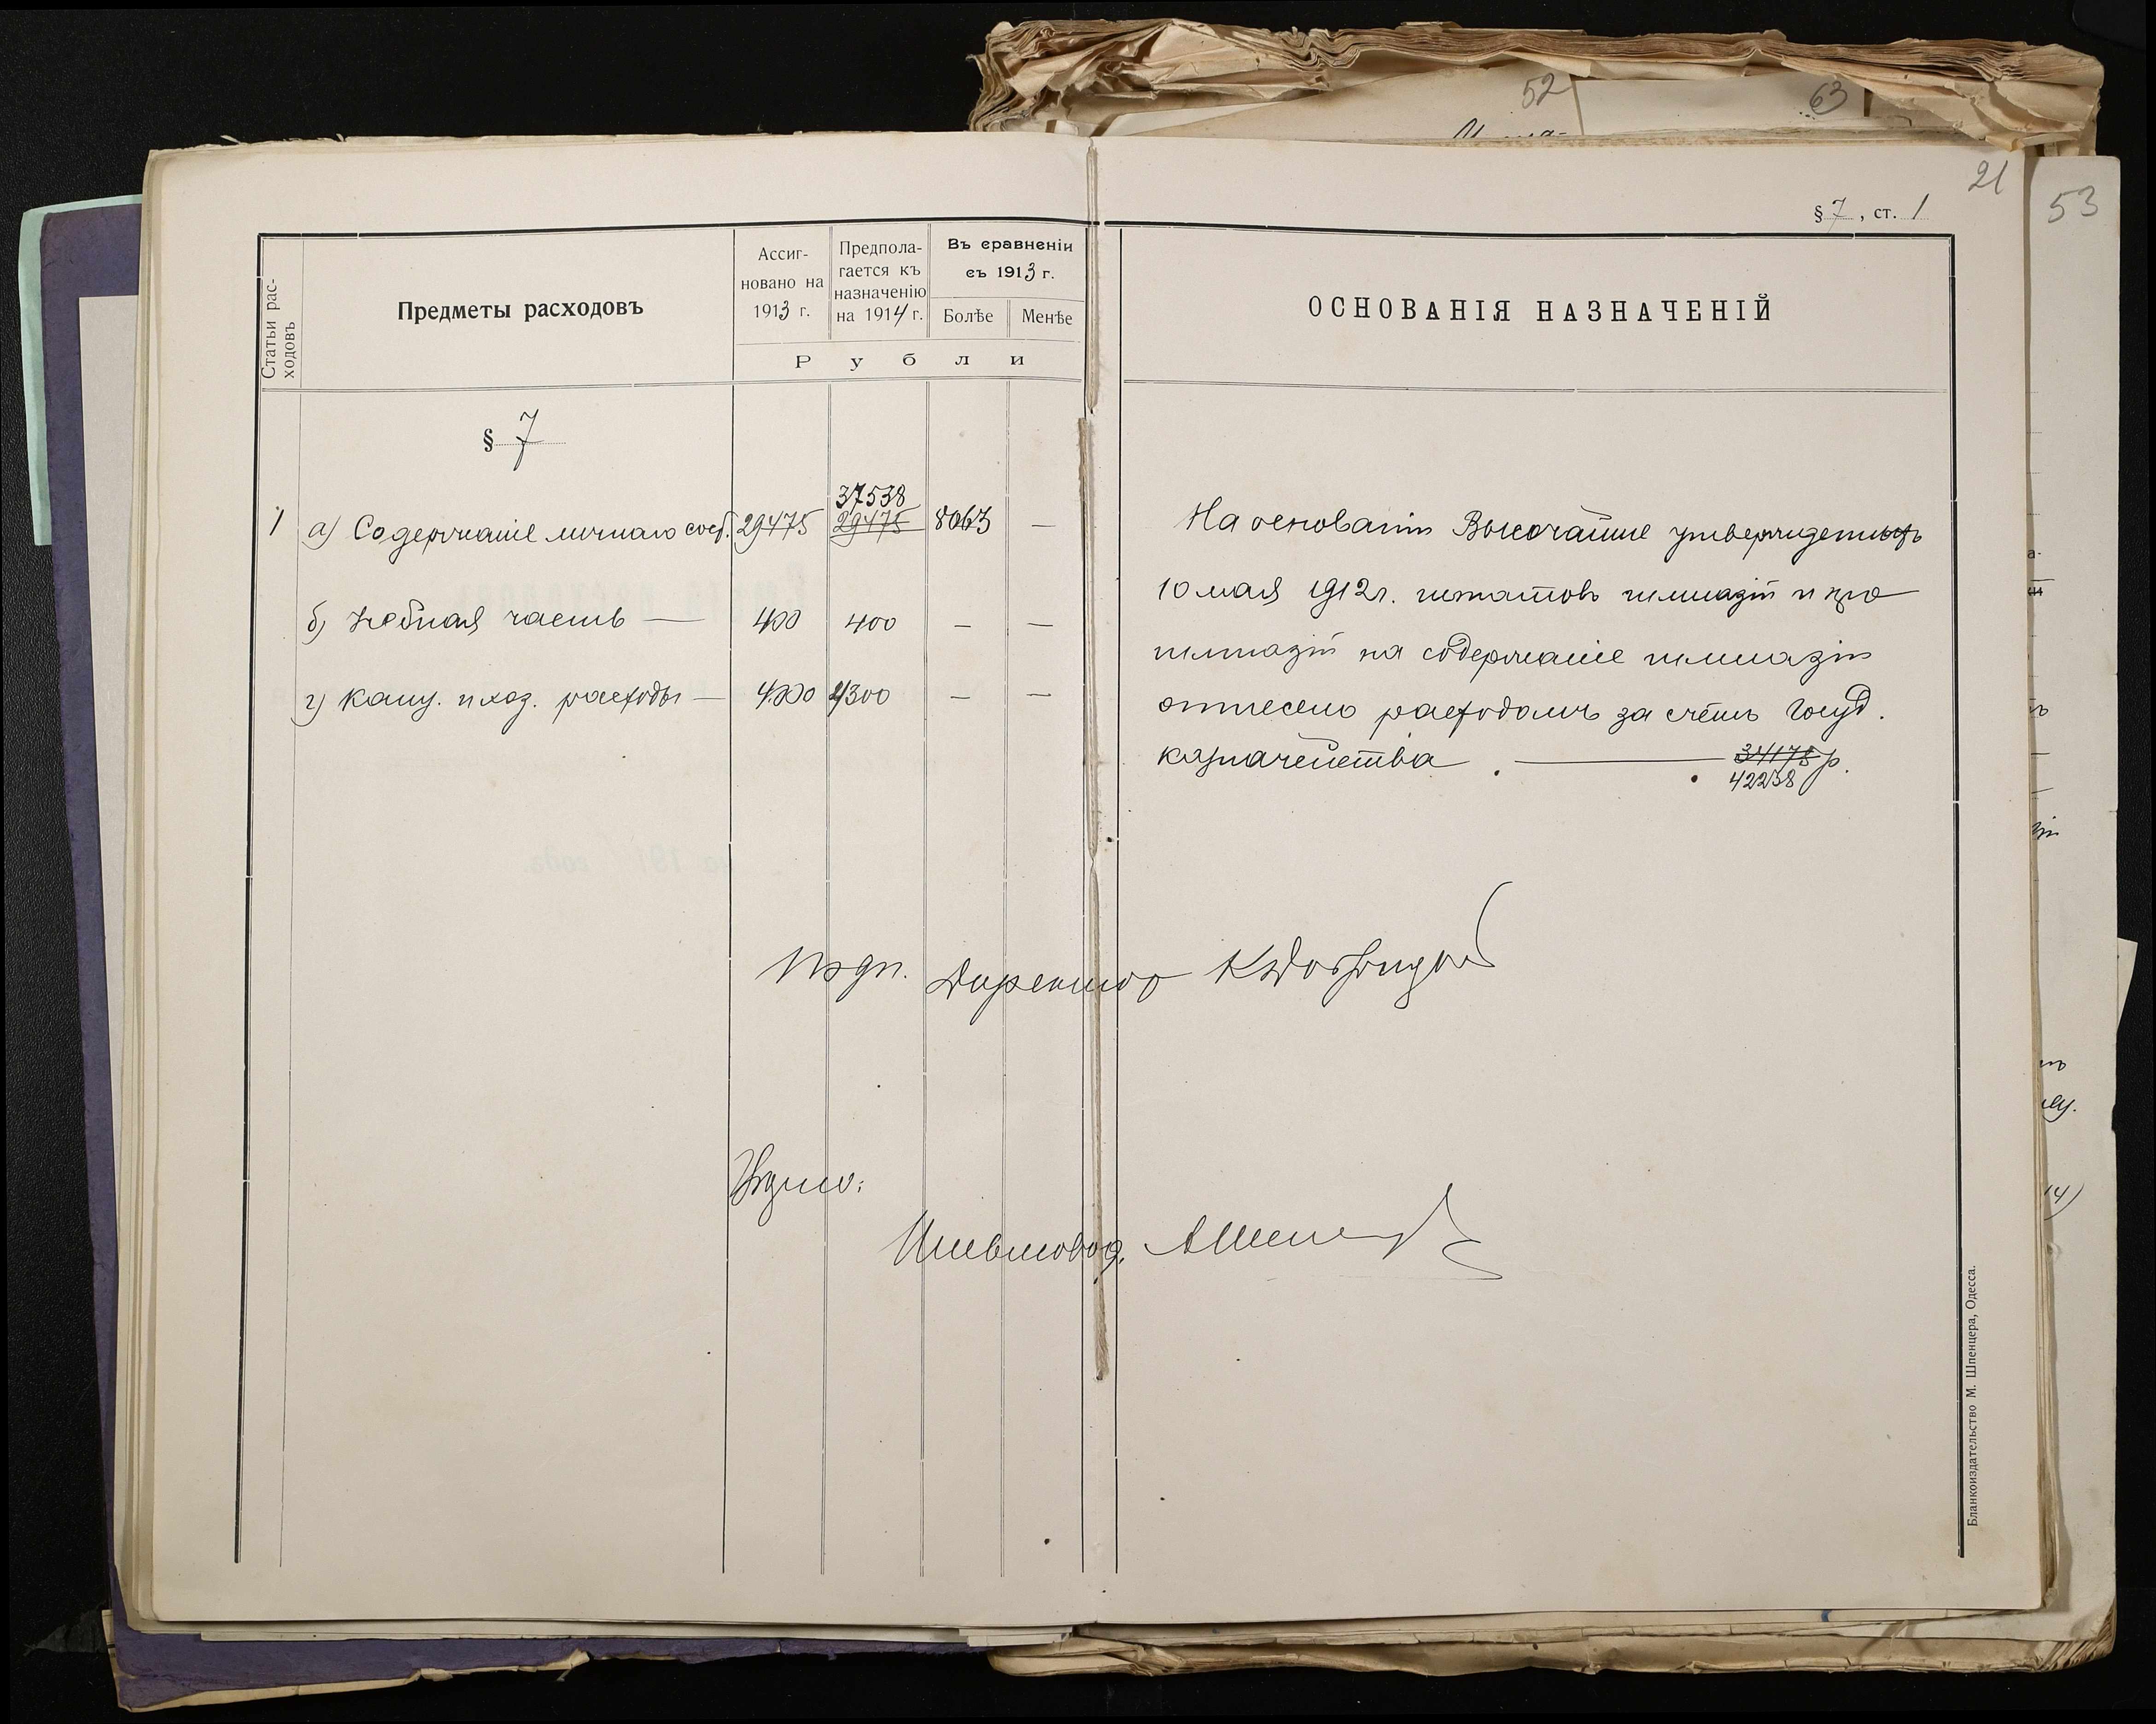 52
63
21
53
§ 7, ст. 1
Статьи рас-
ходовъ
Предметы расходовъ
Ассиг-
новано на
1913 г.
Предпола-
гается къ
назначенію
на 1914 г.
Въ сравненіи
съ 1913 г.
Болѣе
Менѣе
Рубли
ОСНОВАНІЯ НАЗНАЧЕНІЙ
§ 7
37538
1 а) Содержаніе личнаго сост. 29475 29475 8063 —
б) Учебная часть — 400 400 — —
г) Канц. и хоз. расходы — 4300 — —
На основаніи Высочайше утвержденныхъ
10 мая 1912 г. штатовъ гимназій и про
гимназій на содержаніе гимназіи
отнесено расходомъ за счетъ Госуд.
казначейства . — 34175 р.
42238
Подп. Директор
Вѣрно:
Письмовод.
Бланкоиздательство М. Шпенцера, Одесса.